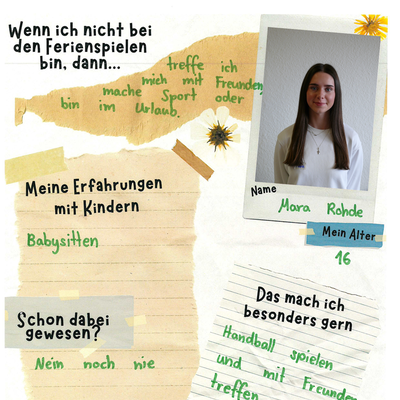 Wenn ich nicht bei
den Ferienspielen
bin, dann...
treffe ich
mich mit Freunden,
mache Sport oder
bin im Urlaub.
Name
Mara Rohde
Mein Alter
16
Meine Erfahrungen
mit Kindern
Babysitten
Schon dabei
gewesen?
Nein noch nie
Das mach ich
besonders gern
Handball spielen
und mit Freunden
treffen